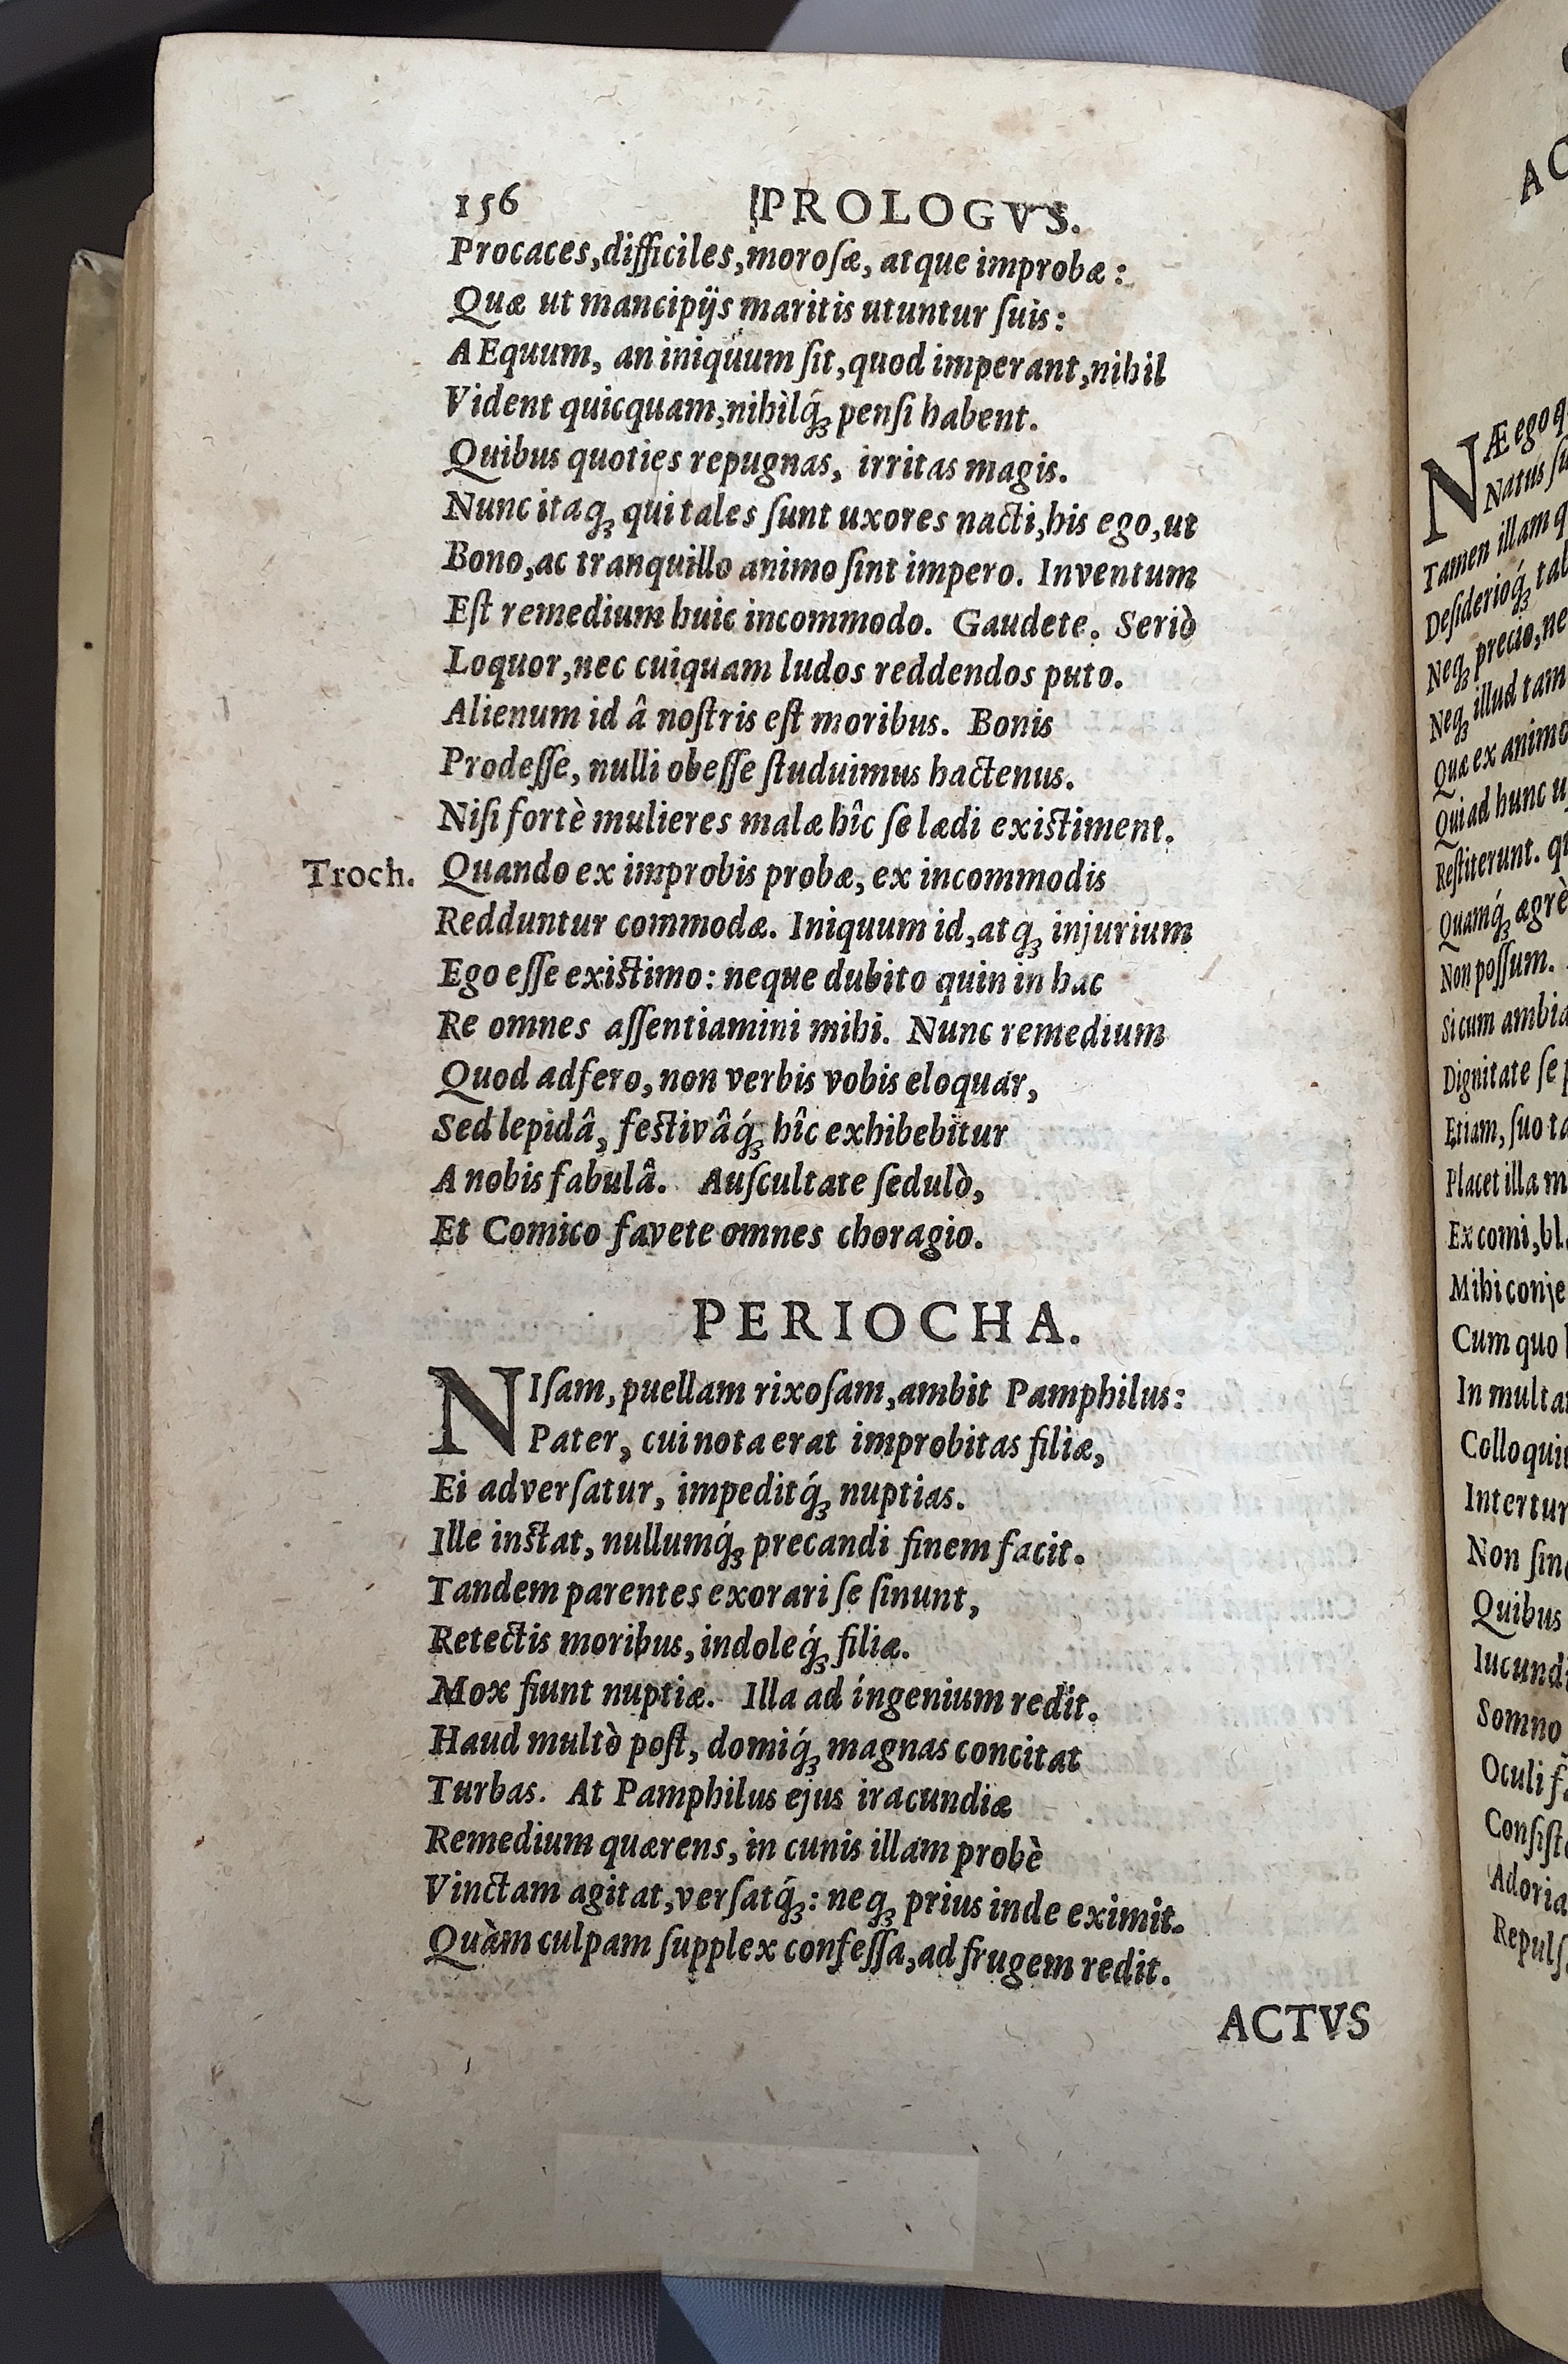 156 PROLOGVS.
Procaces, difficiles, moroſæ, atque improbæ:
Quæ ut mancipijs maritis utuntur ſuis:
AEquum, an iniquum ſit, quod imperant, nihil
Vident quicquam, nihilq́ꝫ penſi habent.
Quibus quoties repugnas, irritas magis.
Nunc itaqꝫ qui tales ſunt uxores nacti, his ego, ut
Bono, ac tranquillo animo ſint impero. Inventum
Eſt remedium huic incommodo. Gaudete. Seriò
Loquor, nec cuiquam ludos reddendos puto.
Alienum id â noſtris eſt moribus. Bonis
Prodeſſe, nulli obeſſe ſtuduimus hactenus.
Niſi fortè mulieres malæ hîc ſe lædi exiſtiment.
Troch. Quando ex improbis probæ, ex incommodis
Redduntur commodæ. Iniquum id, atqꝫ injurium
Ego eſſe exiſtimo: neque dubito quin in hac
Re omnes aſſentiamini mihi. Nunc remedium
Quod adfero, non verbis vobis eloquar,
Sed lepidâ, feſtivâq́ꝫ hîc exhibebitur
A nobis fabulâ. Auſcultate ſedulò,
Et Comico favete omnes choragio.
PERIOCHA.
NIſam, puellam rixoſam, ambit Pamphilus:
Pater, cui nota erat improbitas filiæ,
Ei adverſatur, impeditq́ꝫ nuptias.
Ille inſtat, nullumq́ꝫ precandi finem facit.
Tandem parentes exorari ſe ſinunt,
Retectis moribus, indoleq́ꝫ filiæ.
Mox fiunt nuptiæ. Illa ad ingenium redit.
Haud multò poſt, domiq́ꝫ magnas concitat
Turbas. At Pamphilus ejus iracundiæ
Remedium quærens, in cunis illam probè
Vinctam agitat, verſatq́ꝫ: neqꝫ prius inde eximit.
Quàm culpam ſupplex confeſſa, ad frugem redit.
ACTVS
NÆ ego
Natus
Tamen illam
Deſiderioq́ꝫ
Neqꝫ precio, ne
Neqꝫ illud tam
Quæ ex animo
Qui ad hunc
Reſtiterunt.
Quamq́ꝫ ægrè
Non poſſum.
Si cum
Dignitate ſe
Etiam, ſuo
Placet illa
Ex comi,
Mihi
Cum quo
In
Non
Quibus
Somno
Oculi